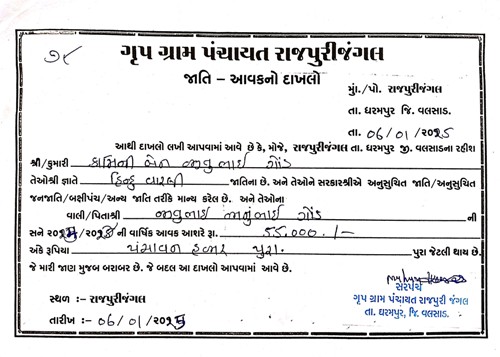 ૭૮
ગૃપ ગ્રામ પંચાયત રાજપુરીજંગલ
જાતિ – આવકનો દાખલો
મું./પો. રાજપુરીજંગલ
તા. ધરમપુર જિ. વલસાડ.
તા. ૦૬/૦૧/૨૦૨૫
આથી દાખલો લખી આપવામાં આવે છે કે, મોજે, રાજપુરીજંગલ તા. ધરમપુર જી. વલસાડના રહીશ
શ્રી/કુમારી કામિની બેન જીવુ ભાઈ ગોંડ
તેઓશ્રી જ્ઞાતે હિન્દુ વારલી જાતિના છે. અને તેઓને સરકારશ્રીએ અનુસુચિત જાતિ/અનુસુચિત
જનજાતિ/બક્ષીપંચ/અન્ય જાતિ તરીકે માન્ય કરેલ છે. અને તેઓના
વાલી/પિતાશ્રી જીવુભાઈ ભાઈ ગોંડ ની
સને ની વાર્ષિક આવક આશરે રૂા. ૫૫.૦૦૦. /-
અંકે રૂપિયા પંચાવન હજાર પુરા. પુરા જેટલી થાય છે.
જે મારી જાણ મુજબ બરાબર છે. જે બદલ આ દાખલો આપવામાં આવે છે.
સ્થળ :- રાજપુરીજંગલ
તારીખ :- ૦૬/૦૧/૨૦૨૫
સરપંચ
ગૃપ ગ્રામ પંચાયત રાજપુરી જંગલ
તા. ધરમપુર, જિ. વલસાડ.